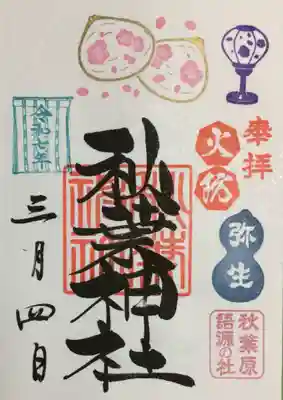 奉拝
火防
弥生
秋葉原
語源の社
秋葉神社
令和七年
三月四日